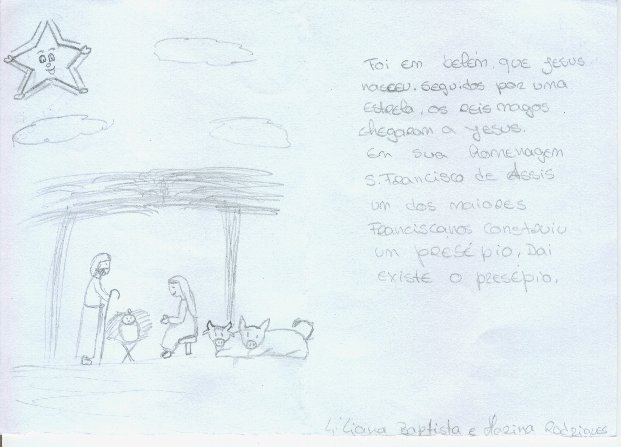 Foi em belém, que jesus
nasceu. Seguidos por uma
estrela, os reis magos
chegaram a jesus.
Em sua homenagem
S. Francisco de Assis
um dos maiores
Franciscanos construiu
um presépio, Dai
existe o presépio.
Liliana Baptista e Marina Rodrigues